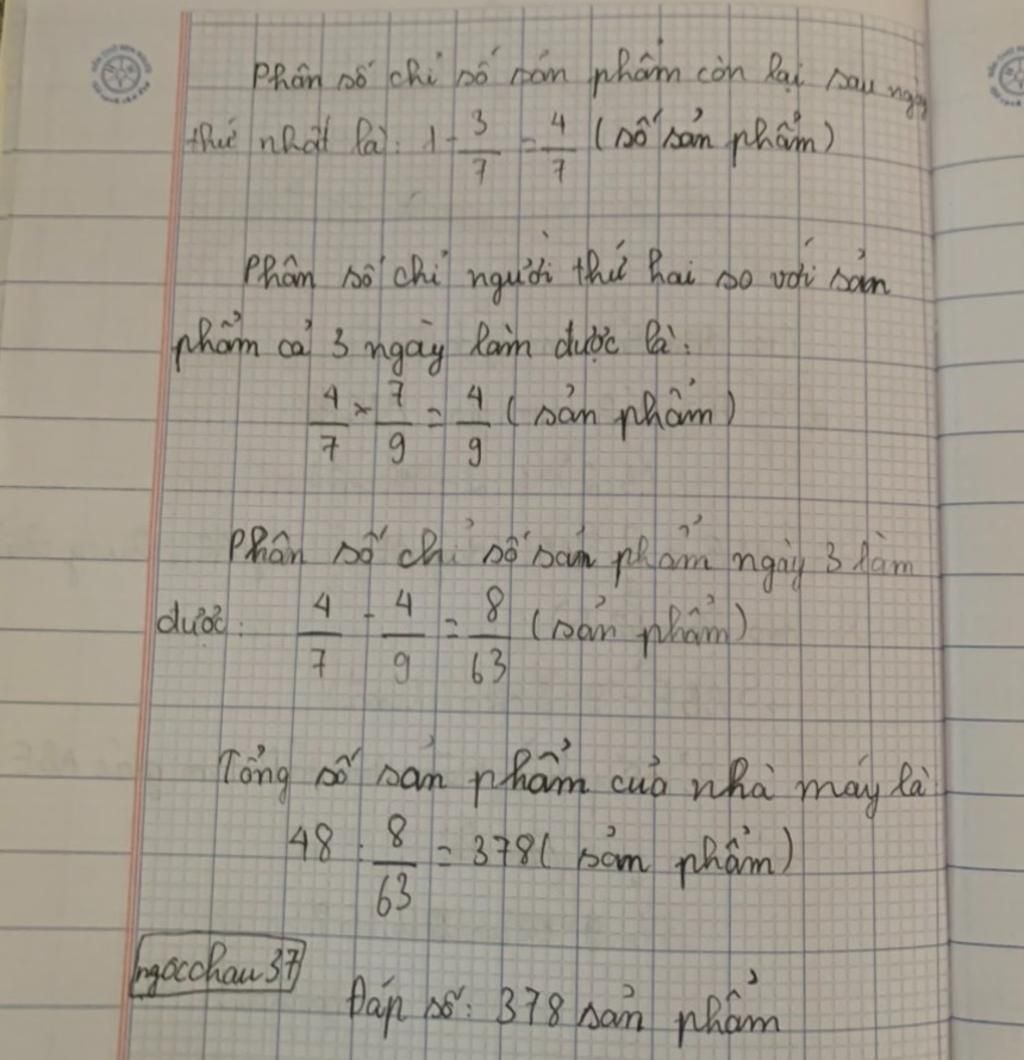 Phân số chỉ số sản phẩm còn lại sau ngày
thứ nhất là: 1 - 3/7 = 4/7 (số sản phẩm)
Phân số chỉ người thứ hai so với sản
phẩm cả 3 ngày làm được là:
4/7 × 7/9 = 4/9 (sản phẩm)
Phân số chỉ số sản phẩm ngày 3 làm
được: 4/7 - 4/9 = 8/63 (sản phẩm)
Tổng số sản phẩm của nhà máy là
48 : 8/63 = 378 (sản phẩm)
ngocchau37
Đáp số: 378 sản phẩm